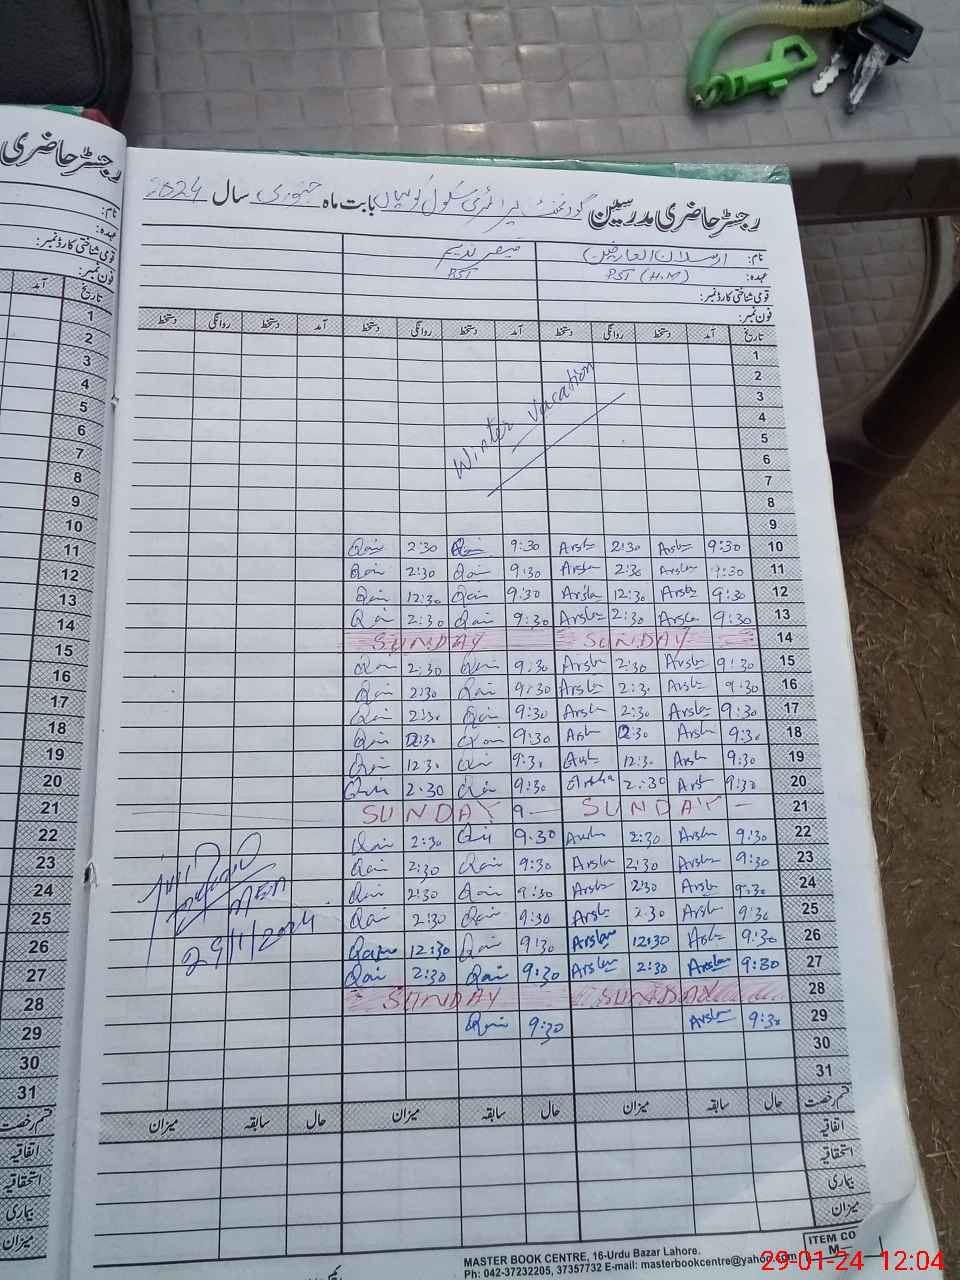 رجسٹر حاضری
نام:
عہدہ:
قومی شناختی کارڈ نمبر:
فون نمبر:
تاریخ آمد
1
2
3
4
5
6
7
8
9
10
11
12
13
14
15
16
17
18
19
20
21
22
23
24
25
26
27
28
29
30
31
قسم رخصت
اتفاقیہ
استحقاقیہ
بیماری
میزان
رجسٹر حاضری مدرسین گورنمنٹ پرائمری سکول بابت ماہ جنوری سال 2024
نام: ارسلان العارفین قیصر ندیم
عہدہ: PST (H.M) PST
قومی شناختی کارڈ نمبر:
فون نمبر:
تاریخ آمد دستخط روانگی دستخط آمد دستخط روانگی دستخط آمد دستخط روانگی دستخط
1
2
3
4
5
6
7
8
9
Winter Vacation
10 9:30 Arsla 2:30 Arsla 9:30 Qai 2:30 Qai
11 9:30 Arsla 2:30 Arsla 9:30 Qai 2:30 Qai
12 9:30 Arsla 12:30 Arsla 9:30 Qai 12:30 Qai
13 9:30 Arsla 2:30 Arsla 9:30 Qai 2:30 Qai
14 SUNDAY SUNDAY
15 9:30 Arsla 2:30 Arsla 9:30 Qai 2:30 Qai
16 9:30 Arsla 2:30 Arsla 9:30 Qai 2:30 Qai
17 9:30 Arsla 2:30 Arsla 9:30 Qai 2:30 Qai
18 9:30 Arsl 2:30 Arsl 9:30 Qai 2:30 Qai
19 9:30 Arsl 12:30 Arsl 9:30 Qai 12:30 Qai
20 9:30 Arsl 2:30 Arsla 9:30 Qai 2:30 Qai
21 SUNDAY 9 SUNDAY
22 9:30 Arsla 2:30 Arsla 9:30 Qai 2:30 Qai
23 9:30 Arsla 2:30 Arsla 9:30 Qai 2:30 Qai
24 9:30 Arsla 2:30 Arsla 9:30 Qai 2:30 Qai
25 9:30 Arsla 2:30 Arsla 9:30 Qai 2:30 Qai
26 9:30 Arsla 12:30 Arsla 9:30 Qai 12:30 Qai
27 9:30 Arsla 2:30 Arsla 9:30 Qai 2:30 Qai
28 SUNDAY SUNDAY
29 9:30 Arsla 9:30 Qai
30
31
29/1/2024
قسم رخصت حال سابقہ میزان حال سابقہ میزان حال سابقہ میزان
اتفاقیہ
استحقاقیہ
بیماری
میزان
MASTER BOOK CENTRE, 16-Urdu Bazar Lahore.
Ph: 042-37232205, 37357732 E-mail: masterbookcentre@yahoo.com
ITEM CO
M-
29-01-24 12:04